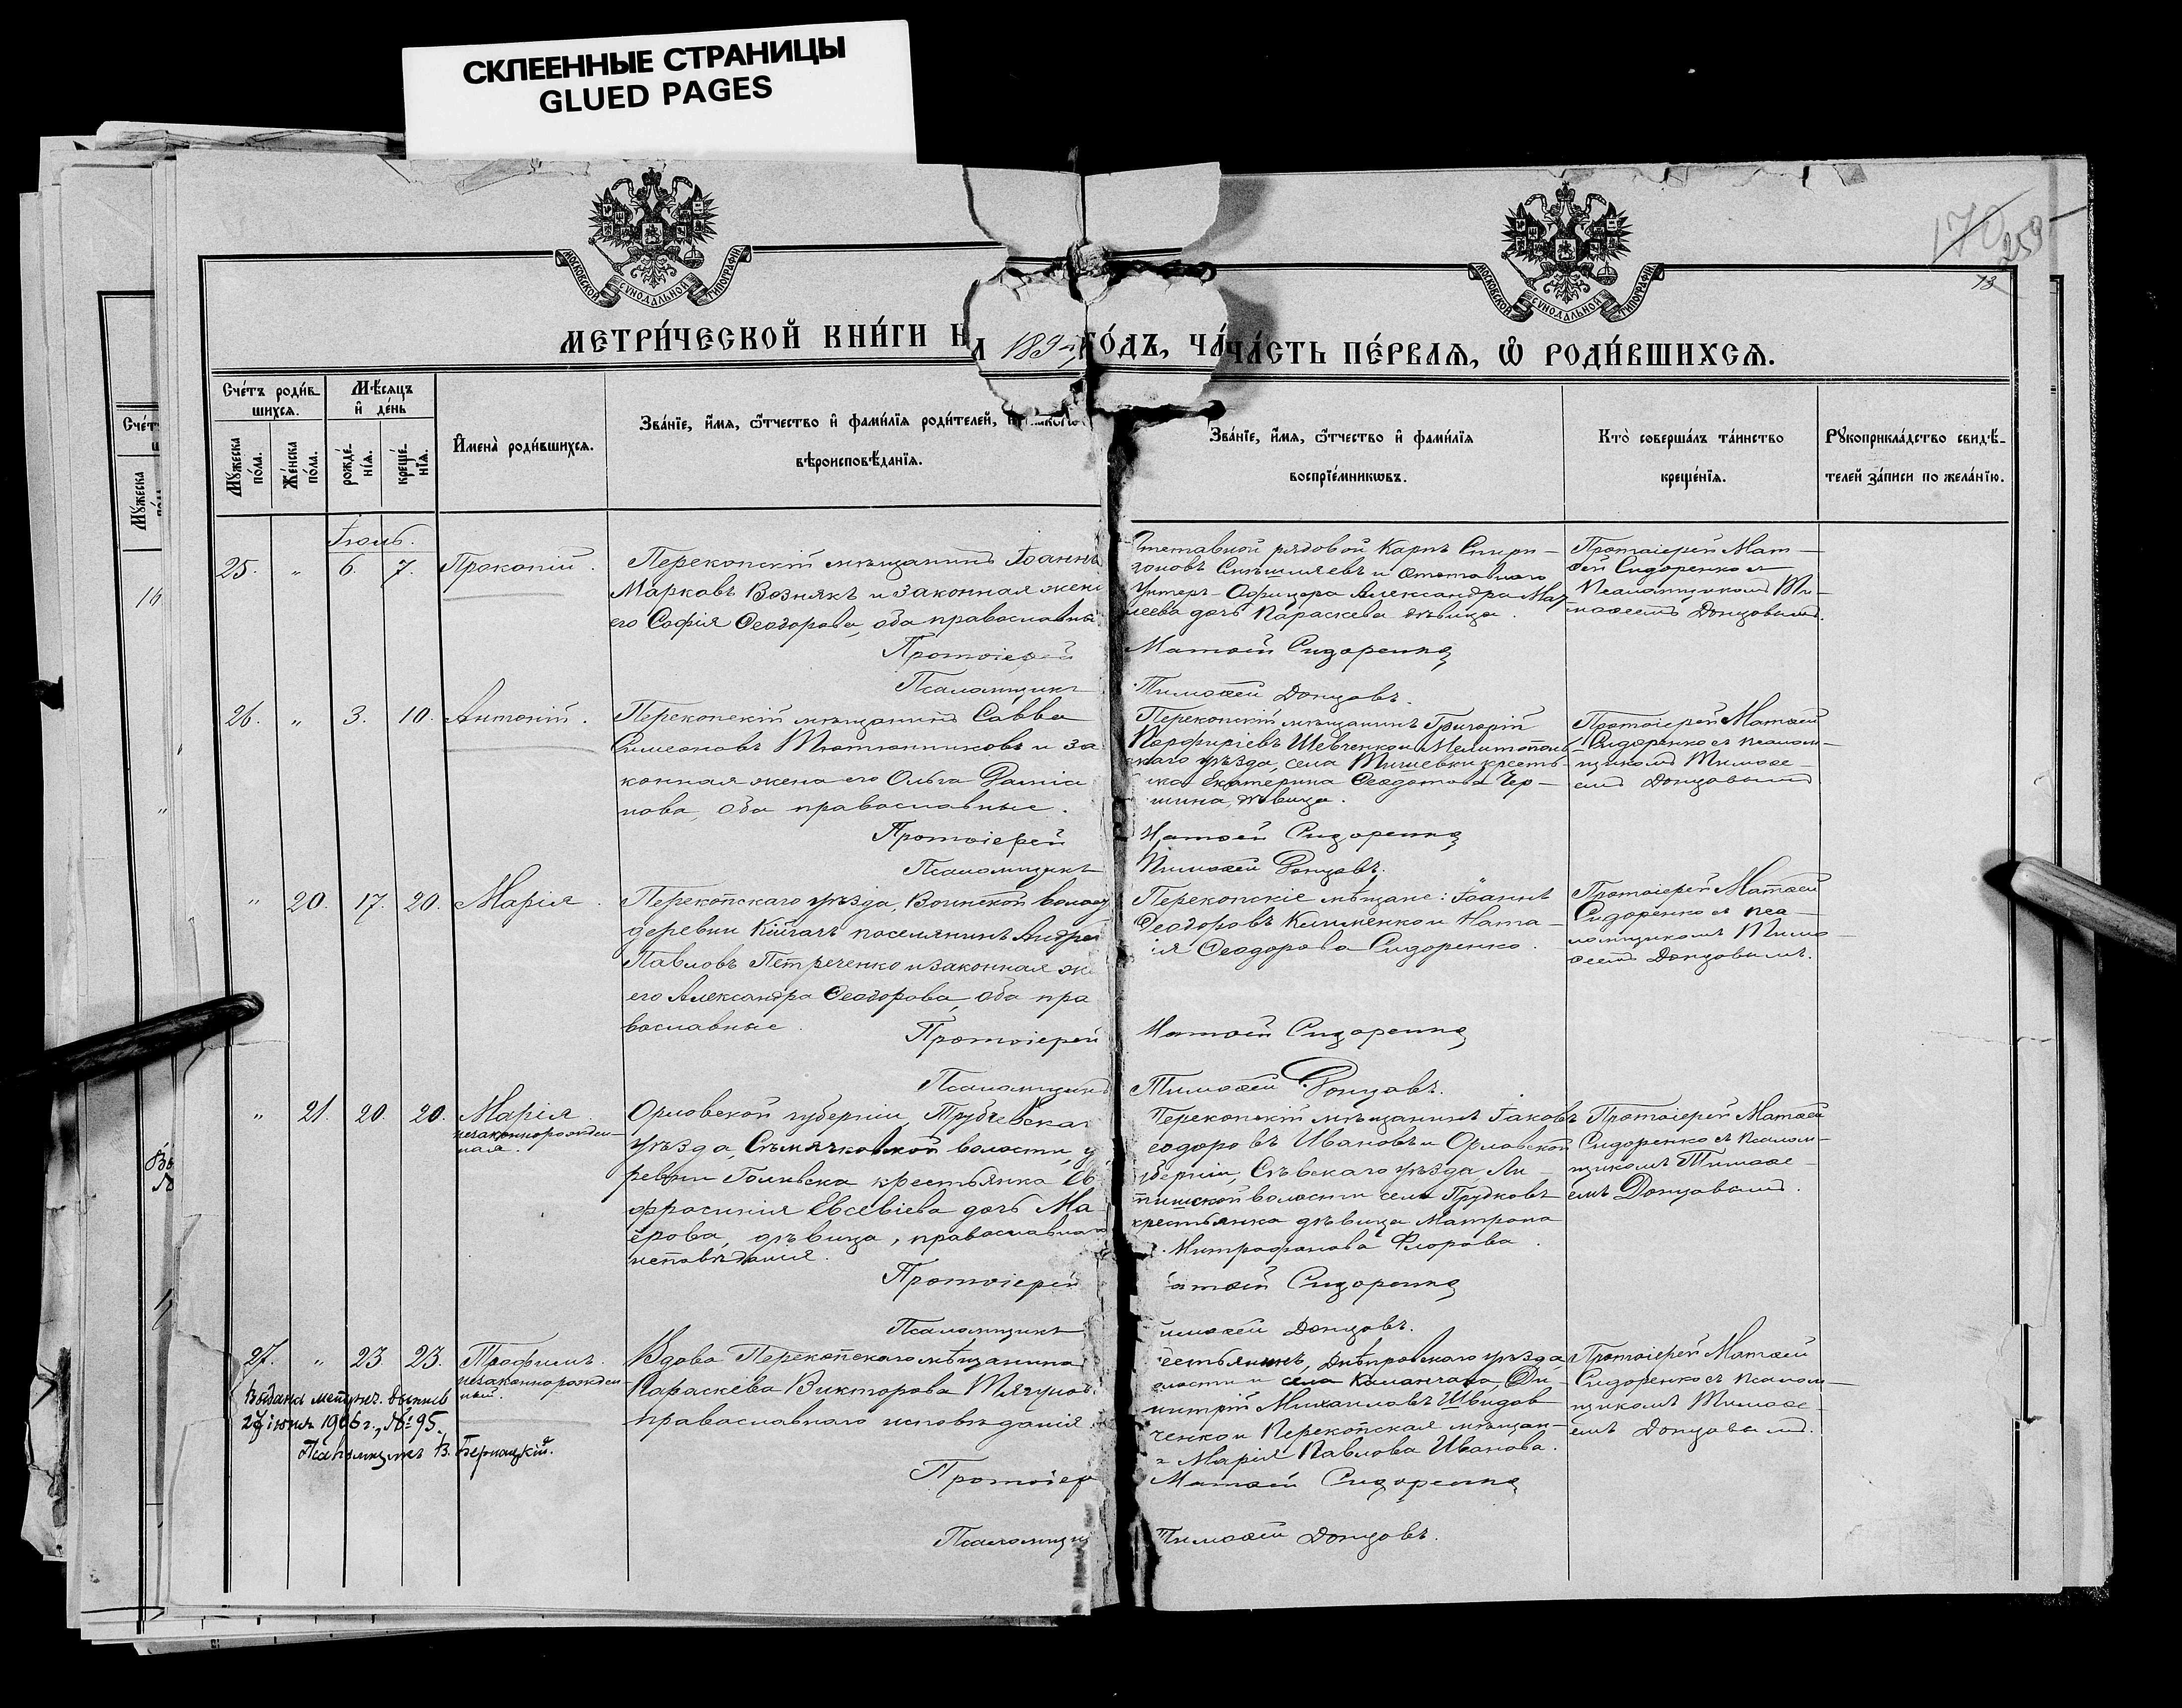 СКЛЕЕННЫЕ СТРАНИЦЫ
GLUED PAGES
МОСКОВСКОЙ СѴНОДАЛЬНОЙ ТИПОГРАФІИ
МОСКОВСКОЙ СѴНОДАЛЬНОЙ ТИПОГРАФІИ
170 259
73
МЕТРИ́ЧЕСКОЙ КНИ́ГИ НА 189 ГО́ДЪ, ЧА́
ЧА́СТЬ ПЕ́РВАѦ, Ѡ РОДИ́ВШИХСѦ.
Сче́тъ роди́в-
шихся.
Мѣсяцъ
и̂ де́нь
Мꙋ́жеска
по́ла.
Же́нска
по́ла.
рожде́-
нїя.
креще́-
нїя.
И̂мена̀ роди́вшихся.
Зва́нїе, и̂мя, ѻтчество и̂ фами́лїя роди́телей,
вѣроисповѣ́данїя.
Зва́нїе, и̂мя, ѻтчество и̂ фами́лїя
воспрїе́мникѡвъ.
Кто̀ соверша́лъ та́инство
креще́нїя.
Рꙋкоприкла́дство свидѣ́-
телей за́писи по жела́нїю.
Іюль.
25. „ 6. 7. Прокопій.
Перекопскій мѣщанинъ Іоаннъ
Марковъ Вознякъ и законная жена
его Софія Ѳеодорова, оба православные
Протоіерей
Псаломщикъ
Отставной рядовой Карпъ Спири-
доновъ и отставного
Унтеръ-Офицера Александра
дочь Параскева дѣвица.
Матѳій Сидоренко
Тимоѳей Донцовъ.
Протоіерей Мат-
ѳей Сидоренко съ
Псаломщикомъ Ти-
моѳеемъ Донцовымъ.
26. „ 3. 10. Антоній.
Перекопскій мѣщанинъ Савва
Симеоновъ Тютюнниковъ и за
конная жена его Ольга Даміа
нова, оба православные.
Протоіерей
Псаломщикъ
Перекопскій мѣщанинъ Григорій
Порфиріевъ Шевченко и Мелитополь-
скаго уѣзда, села Тишевки кресть-
нка Екатерина Ѳеодотова Чер-
шина, дѣвица.
Матѳей Сидоренко
Тимоѳей Донцовъ.
Протоіерей Матѳей
Сидоренко съ псалом-
щикомъ Тимоѳе-
емъ Донцовымъ
„ 20. 17. 20. Марія.
Перекопскаго уѣзда, Воинской волости
деревни Кійгачъ поселянинъ Андрей
Павловъ Петреченко и законная же
его Александра Ѳеодорова, оба пра
вославные.
Протоіерей
Псаломщикъ
Перекопскіе мѣщане: Іоаннъ
Ѳеодоровъ Клименко и Ната-
ія Ѳеодорова Сидоренко.
Матѳей Сидоренко
Тимоѳей Донцовъ.
Протоіерей Матѳей
Сидоренко съ пса-
ломщикомъ Тимо-
ѳеемъ Донцовымъ.
„ 21. 20. 20. Марія
незаконнорожден-
ная.
Орловской губерніи Трубчевскаг
уѣзда, Сѣмячковской волости, д
ревни Голивска крестьянка Ев
фросинія Евсевіева дочь Ма
ёрова, дѣвица, православнаго
исповѣданія.
Протоіерей
Псаломщикъ
Перекопскій мѣщанинъ Іаковъ
еодоровъ Ивановъ и Орловской
берніи, Сѣвскаго уѣзда, Ли-
тижской волости села Прудковъ
крестьянка дѣвица Матрона
Митрофанова Флорова.
атѳей Сидоренко
имоѳей Донцовъ.
Протоіерей Матѳей
Сидоренко съ псалом-
щикомъ Тимоѳе-
емъ Донцовымъ.
27. „ 23. 23. Трофимъ.
незаконнорожден-
ный.
Вдова Перекопскаго мѣщанина
Параскева Викторова Тягунов
православнаго исповѣданія.
Протоіер
Псаломщи
естьянинъ, Днѣпровскаго уѣзда,
олости и села Каланчака, Ди-
митрій Михаиловъ Швидов
ченко и Перекопская мѣщан-
а Марія Павлова Иванова.
Матѳей Сидоренко
Тимоѳей Донцовъ.
Протоіерей Матѳей
Сидоренко съ псалом-
щикомъ Тимоѳе-
емъ Донцовымъ.
Выдана метрич. выпись
27 іюня 1906 г., № 95.
Псаломщикъ В. Бернацкій.